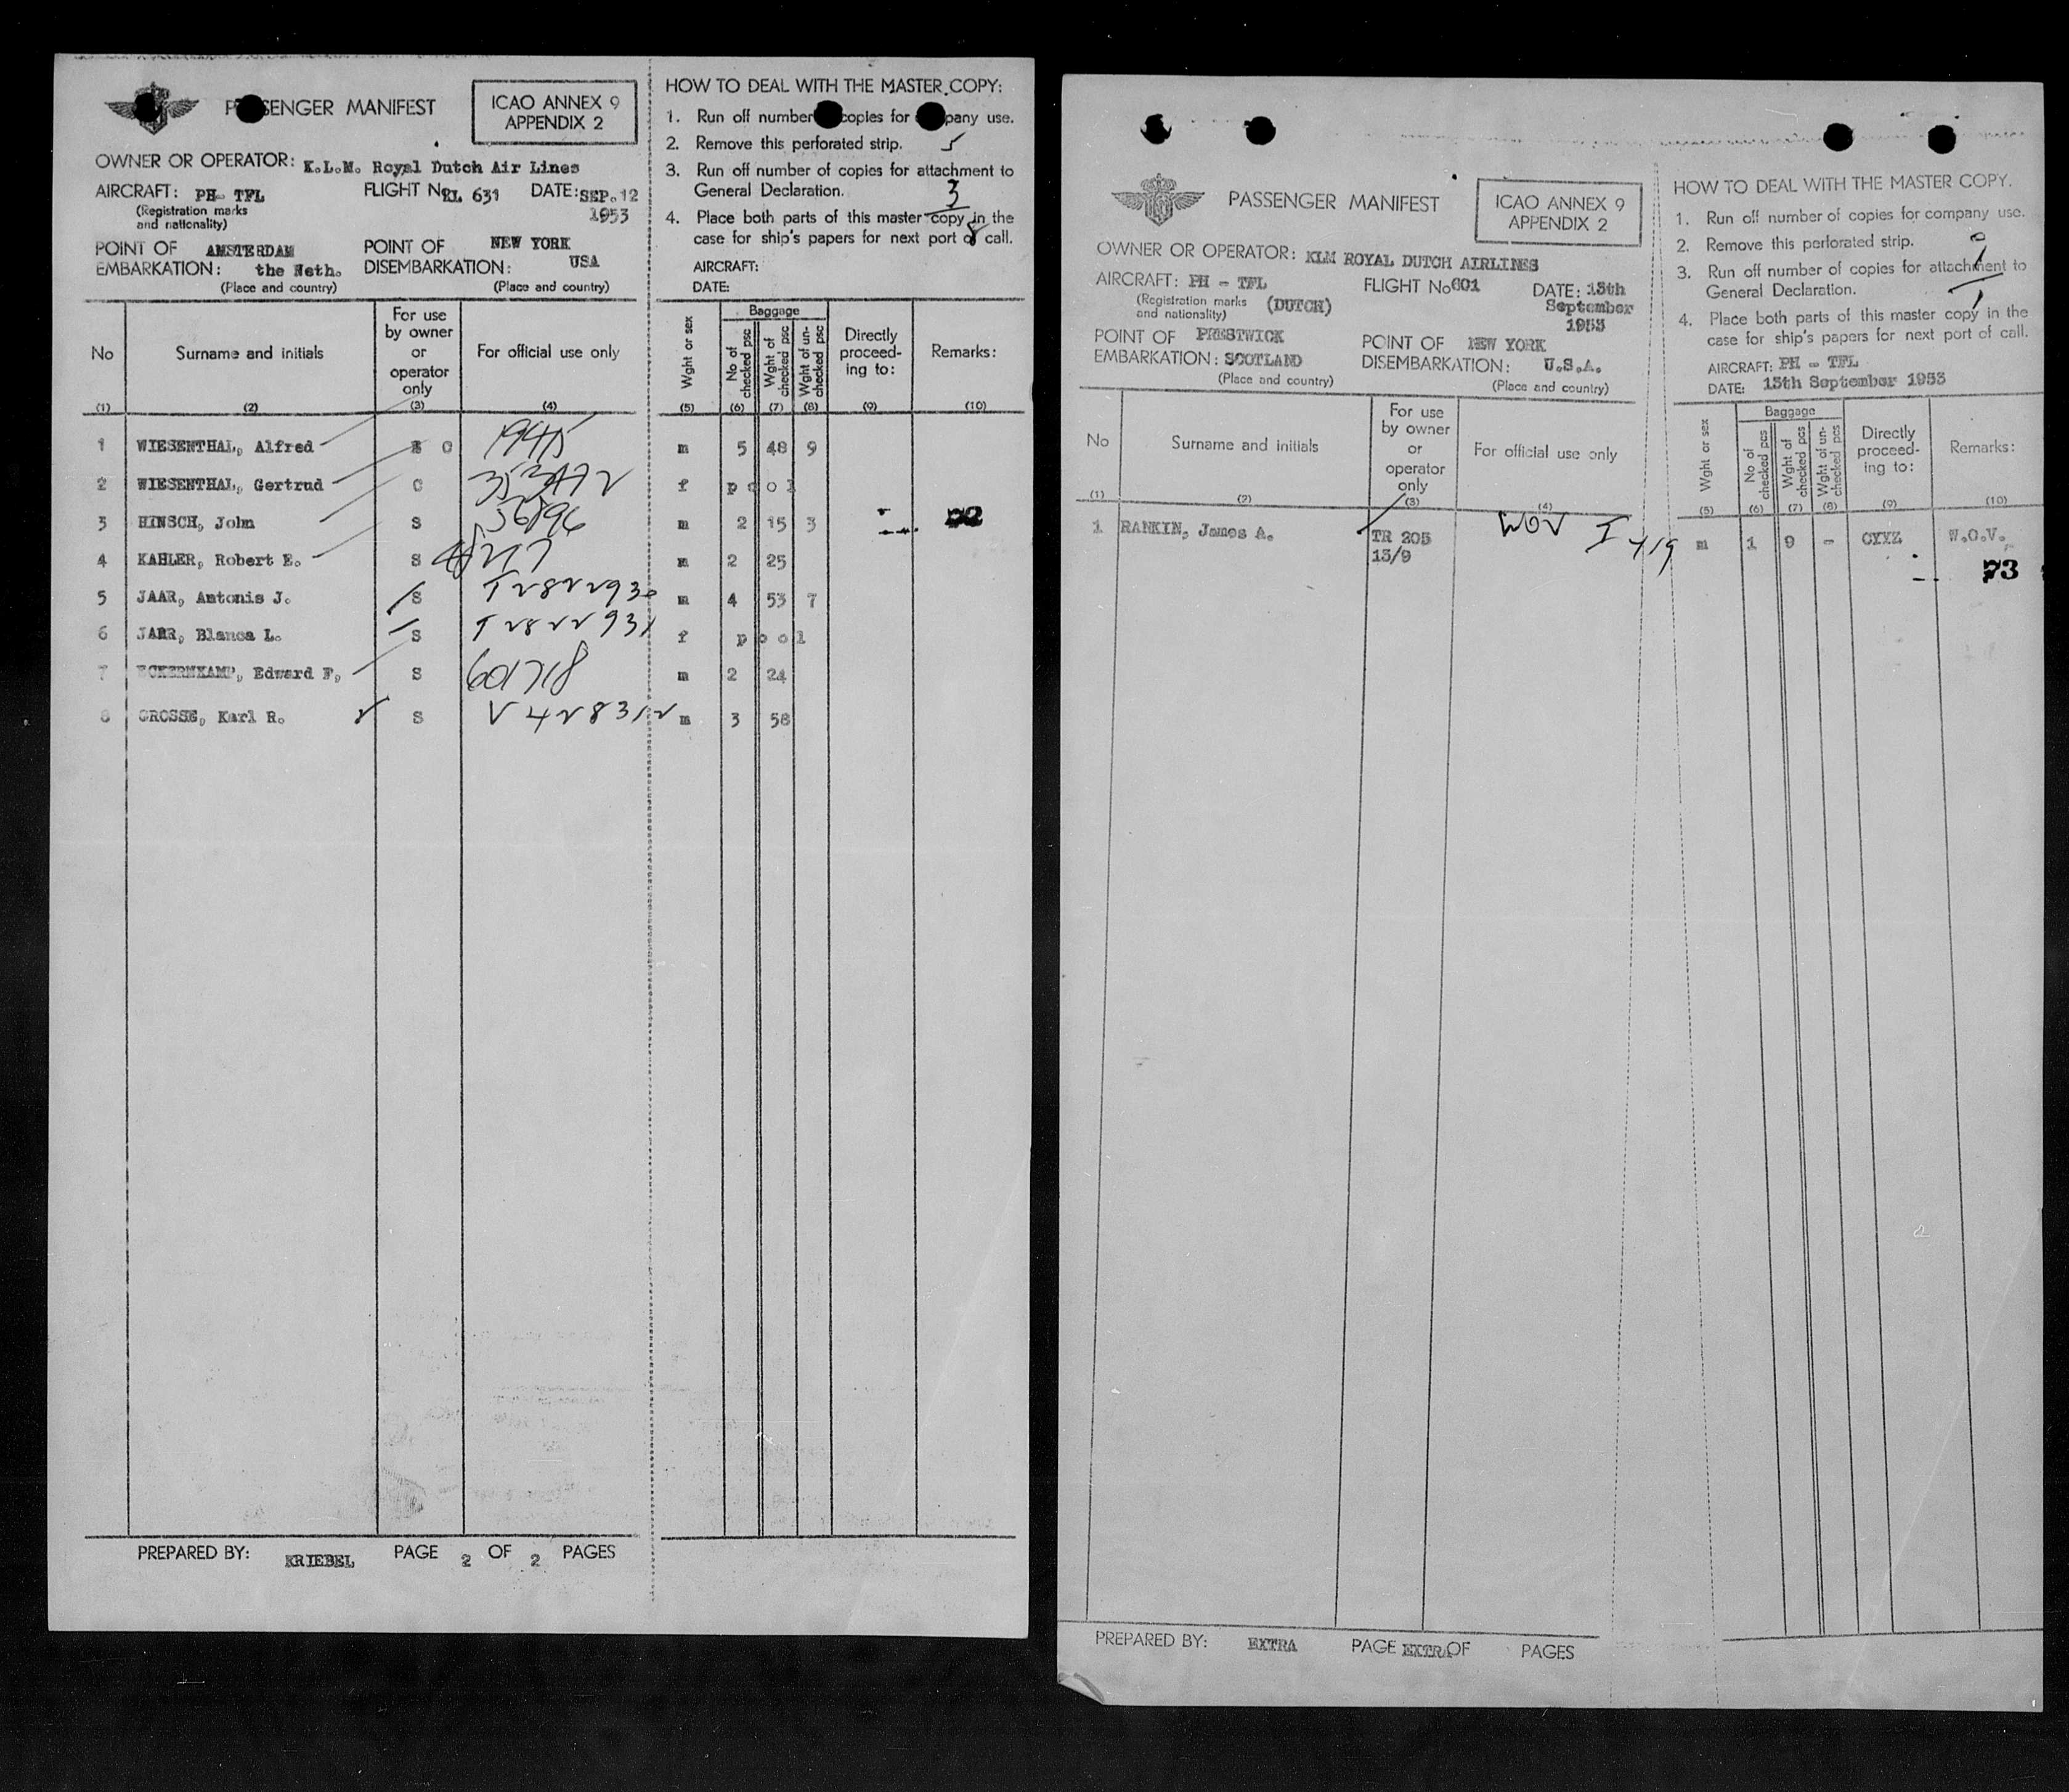 PASSENGER MANIFEST
ICAO ANNEX 9
APPENDIX 2
OWNER OR OPERATOR: K.L.M. Royal Dutch Air Lines
AIRCRAFT: PH- TFL FLIGHT No KL 631 DATE: SEP. 12
(Registration marks
and nationality) 1953
POINT OF AMSTERDAM POINT OF NEW YORK
EMBARKATION: the Neth. DISEMBARKATION: USA
(Place and country) (Place and country)
HOW TO DEAL WITH THE MASTER COPY:
1. Run off number of copies for company use.
2. Remove this perforated strip. 5
3. Run off number of copies for attachment to
General Declaration. 3
4. Place both parts of this master copy in the
case for ship's papers for next port of call. 8
AIRCRAFT:
DATE:
No Surname and initials For use by owner or operator only For official use only Wght or sex Baggage No of checked psc Wght of checked psc Wght of un-checked psc Directly proceed-ing to: Remarks:
(1) (2) (3) (4) (5) (6) (7) (8) (9) (10)
1 WIESENTHAL, Alfred C m 5 48 9
2 WIESENTHAL, Gertrud C f pool
3 HINSCH, John S 56896 m 2 15 3
4 KAHLER, Robert E. S m 2 25
5 JAAR, Antonis J. S T282293 m 4 53 7
6 JARR, Blanca L. S T2822931 f pool
7 ECKERNKAMP, Edward F. S 601718 m 2 24
8 GROSSE, Karl R. S V 428312 m 3 58
PREPARED BY: KRIEBEL PAGE 2 OF 2 PAGES
PASSENGER MANIFEST
ICAO ANNEX 9
APPENDIX 2
OWNER OR OPERATOR: KLM ROYAL DUTCH AIRLINES
AIRCRAFT: PH - TFL FLIGHT No 601 DATE: 13th
(Registration marks
and nationality) (DUTCH) September
1953
POINT OF PRESTWICK POINT OF NEW YORK
EMBARKATION: SCOTLAND DISEMBARKATION: U.S.A.
(Place and country) (Place and country)
HOW TO DEAL WITH THE MASTER COPY.
1. Run off number of copies for company use.
2. Remove this perforated strip.
3. Run off number of copies for attachment to
General Declaration. 1
4. Place both parts of this master copy in the
case for ship's papers for next port of call.
AIRCRAFT: PH - TFL
DATE: 13th September 1953
No Surname and initials For use by owner or operator only For official use only Wght or sex Baggage No of checked pcs Wght of checked pcs Wght of un-checked pcs Directly proceed-ing to: Remarks:
(1) (2) (3) (4) (5) (6) (7) (8) (9) (10)
1 RANKIN, James A. TR 205 WOV m 1 9 - CYYZ W.O.V.
13/9 73
PREPARED BY: EXTRA PAGE EXTRA OF PAGES